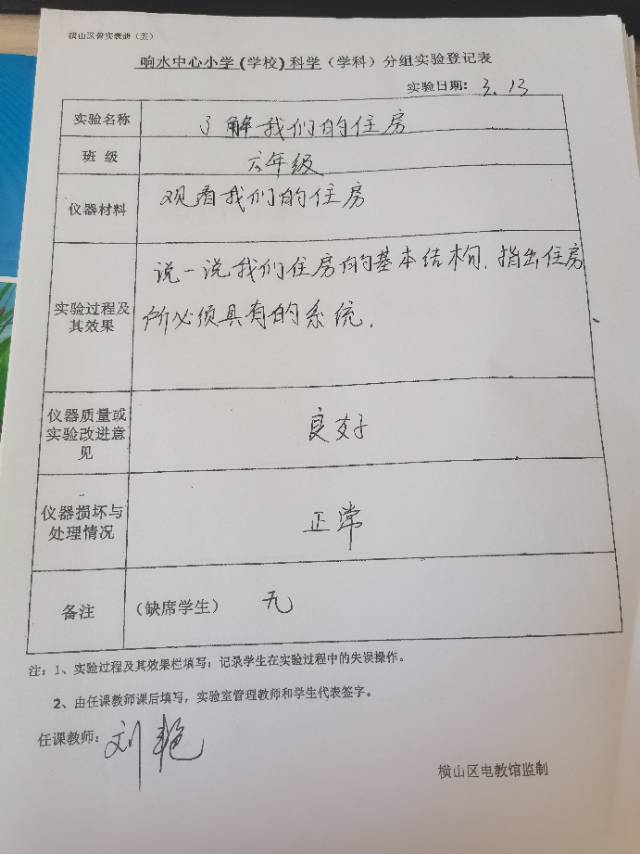 横山区普实表册（五）
响水中心小学(学校)科学（学科）分组实验登记表
实验日期：3.13
实验名称 了解我们的住房
班 级 六年级
仪器材料 观看我们的住房
实验过程及其效果 说一说我们住房的基本结构,指出住房
所必须具有的系统.
仪器质量或实验改进意见 良好
仪器损坏与处理情况 正常
备注 （缺席学生） 无
注：1、实验过程及其效果栏填写：记录学生在实验过程中的失误操作。
2、由任课教师课后填写，实验室管理教师和学生代表签字。
任课教师：刘艳
横山区电教馆监制